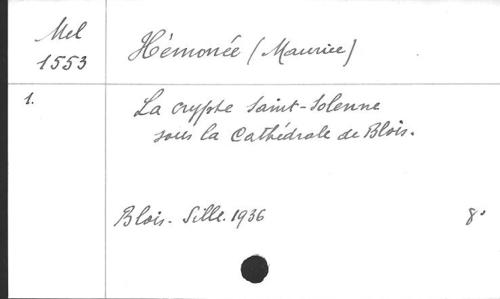 Mel
1553
Hémonée (Maurice)
1.
La crypte Saint-Solenne
sous la Cathédrale de Blois.
Blois. Sille. 1936
8°